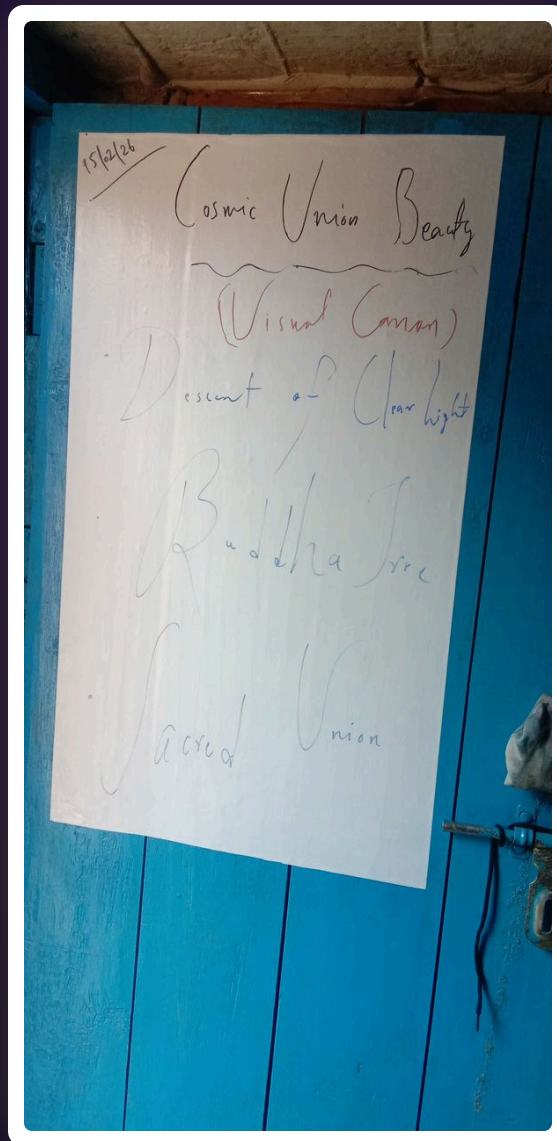 15/02/26
Cosmic Union Beauty
(Visual Canon)
Descent of Clear Light
Buddha Tree
Sacred Union